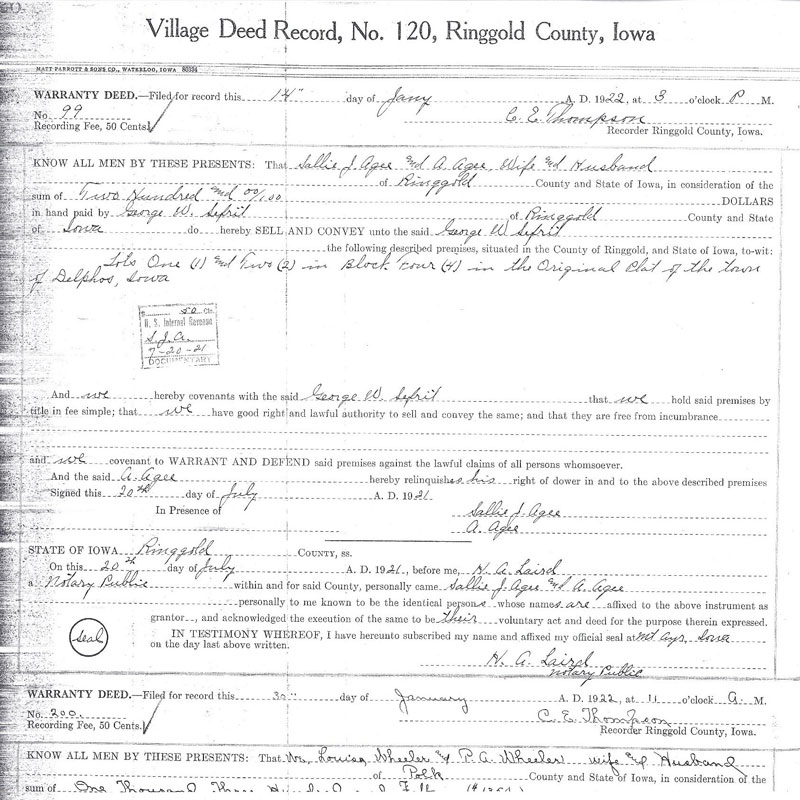 Village Deed Record, No. 120, Ringgold County, Iowa
MATT PARROTT & SONS CO., WATERLOO, IOWA
WARRANTY DEED.—Filed for record this 14" day of Jany A. D. 1922, at 3 o'clock P M.
No. 99 C. E. Thompson
Recording Fee, 50 Cents Recorder Ringgold County, Iowa.
KNOW ALL MEN BY THESE PRESENTS: That Sallie J. Agee and A. Agee, Wife and Husband
of Ringgold County and State of Iowa, in consideration of the
sum of Two Hundred and 00/100 DOLLARS
in hand paid by George W. Sefrit of Ringgold County and State
of Iowa do hereby SELL AND CONVEY unto the said George W. Sefrit
the following described premises, situated in the County of Ringgold, and State of Iowa, to-wit:
Lots One (1) and Two (2) in Block Four (4) in the Original Plat of the town
of Delphos, Iowa
$ 50 Cts.
U. S. Internal Revenue
S. J. A.
7-20-21
DOCUMENTARY
And we hereby covenants with the said George W. Sefrit that we hold said premises by
title in fee simple; that we have good right and lawful authority to sell and convey the same; and that they are free from incumbrance
and we covenant to WARRANT AND DEFEND said premises against the lawful claims of all persons whomsoever.
And the said A. Agee hereby relinquishes his right of dower in and to the above described premises
Signed this 20th day of July A. D. 1921
In Presence of Sallie J. Agee
A. Agee
STATE OF IOWA Ringgold COUNTY, ss.
On this 20th day of July A. D. 1921, before me, H. A. Laird
a Notary Public within and for said County, personally came Sallie J. Agee and A. Agee
personally to me known to be the identical persons whose names are affixed to the above instrument as
grantor , and acknowledged the execution of the same to be their voluntary act and deed for the purpose therein expressed.
Seal
IN TESTIMONY WHEREOF, I have hereunto subscribed my name and affixed my official seal at Mt Ayr, Iowa
on the day last above written.
H. A. Laird
Notary Public
WARRANTY DEED.—Filed for record this 30" day of January A. D. 1922, at 11 o'clock A. M.
No. 200. C. E. Thompson
Recording Fee, 50 Cents Recorder Ringgold County, Iowa.
KNOW ALL MEN BY THESE PRESENTS: That We, Louisa Wheeler & P. A. Wheeler wife and Husband
of Polk County and State of Iowa, in consideration of the
sum of One Thousand Three